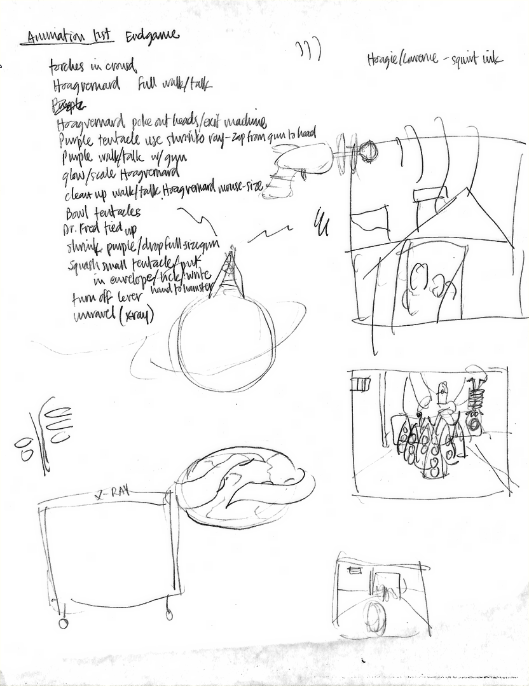 Animation list Endgame
Hoagie/Laverne - squirt ink
torches in crowd
Hoagvernard full walk/talk
Hoagvernard poke out heads/exit machine
Purple tentacle use shrinko ray - zap from gun to head
Purple walk/talk w/ gun
glow/scale Hoagvernard
clean up walk/talk Hoagvernard mouse-size
Bowl tentacles
Dr. Fred tied up
shrink purple/drop full size gun
squash small tentacle/put
in envelope/lick/write
hand to hamster
turn off lever
unravel (x-ray)
X-RAY